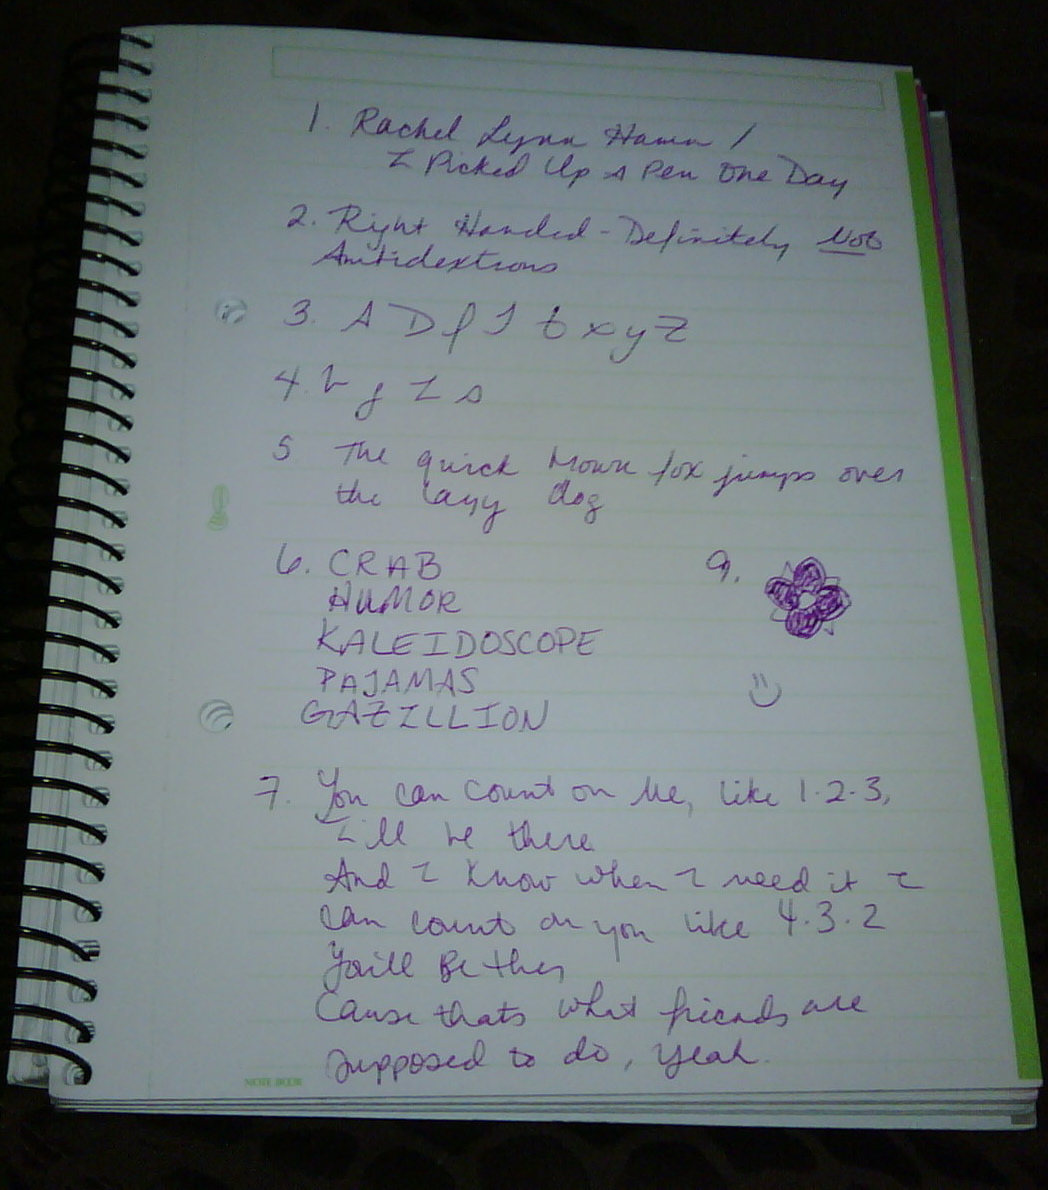 1. Rachel Lynn Hamm /
I Picked Up A Pen One Day
2. Right Handed - Definitely Not
Amtidextrous
3. A D f I t x y z
4. b g I s
5 The quick brown fox jumps over
the lazy dog
6. CRAB
HUMOR
KALEIDOSCOPE
PAJAMAS
GAZILLION
9.
7. You can count on Me, like 1.2.3,
I'll be there
And I know when I need it I
can count on you like 4.3.2
You'll Be there
Cause thats what friends are
supposed to do, yeah.
NOTE BOOK